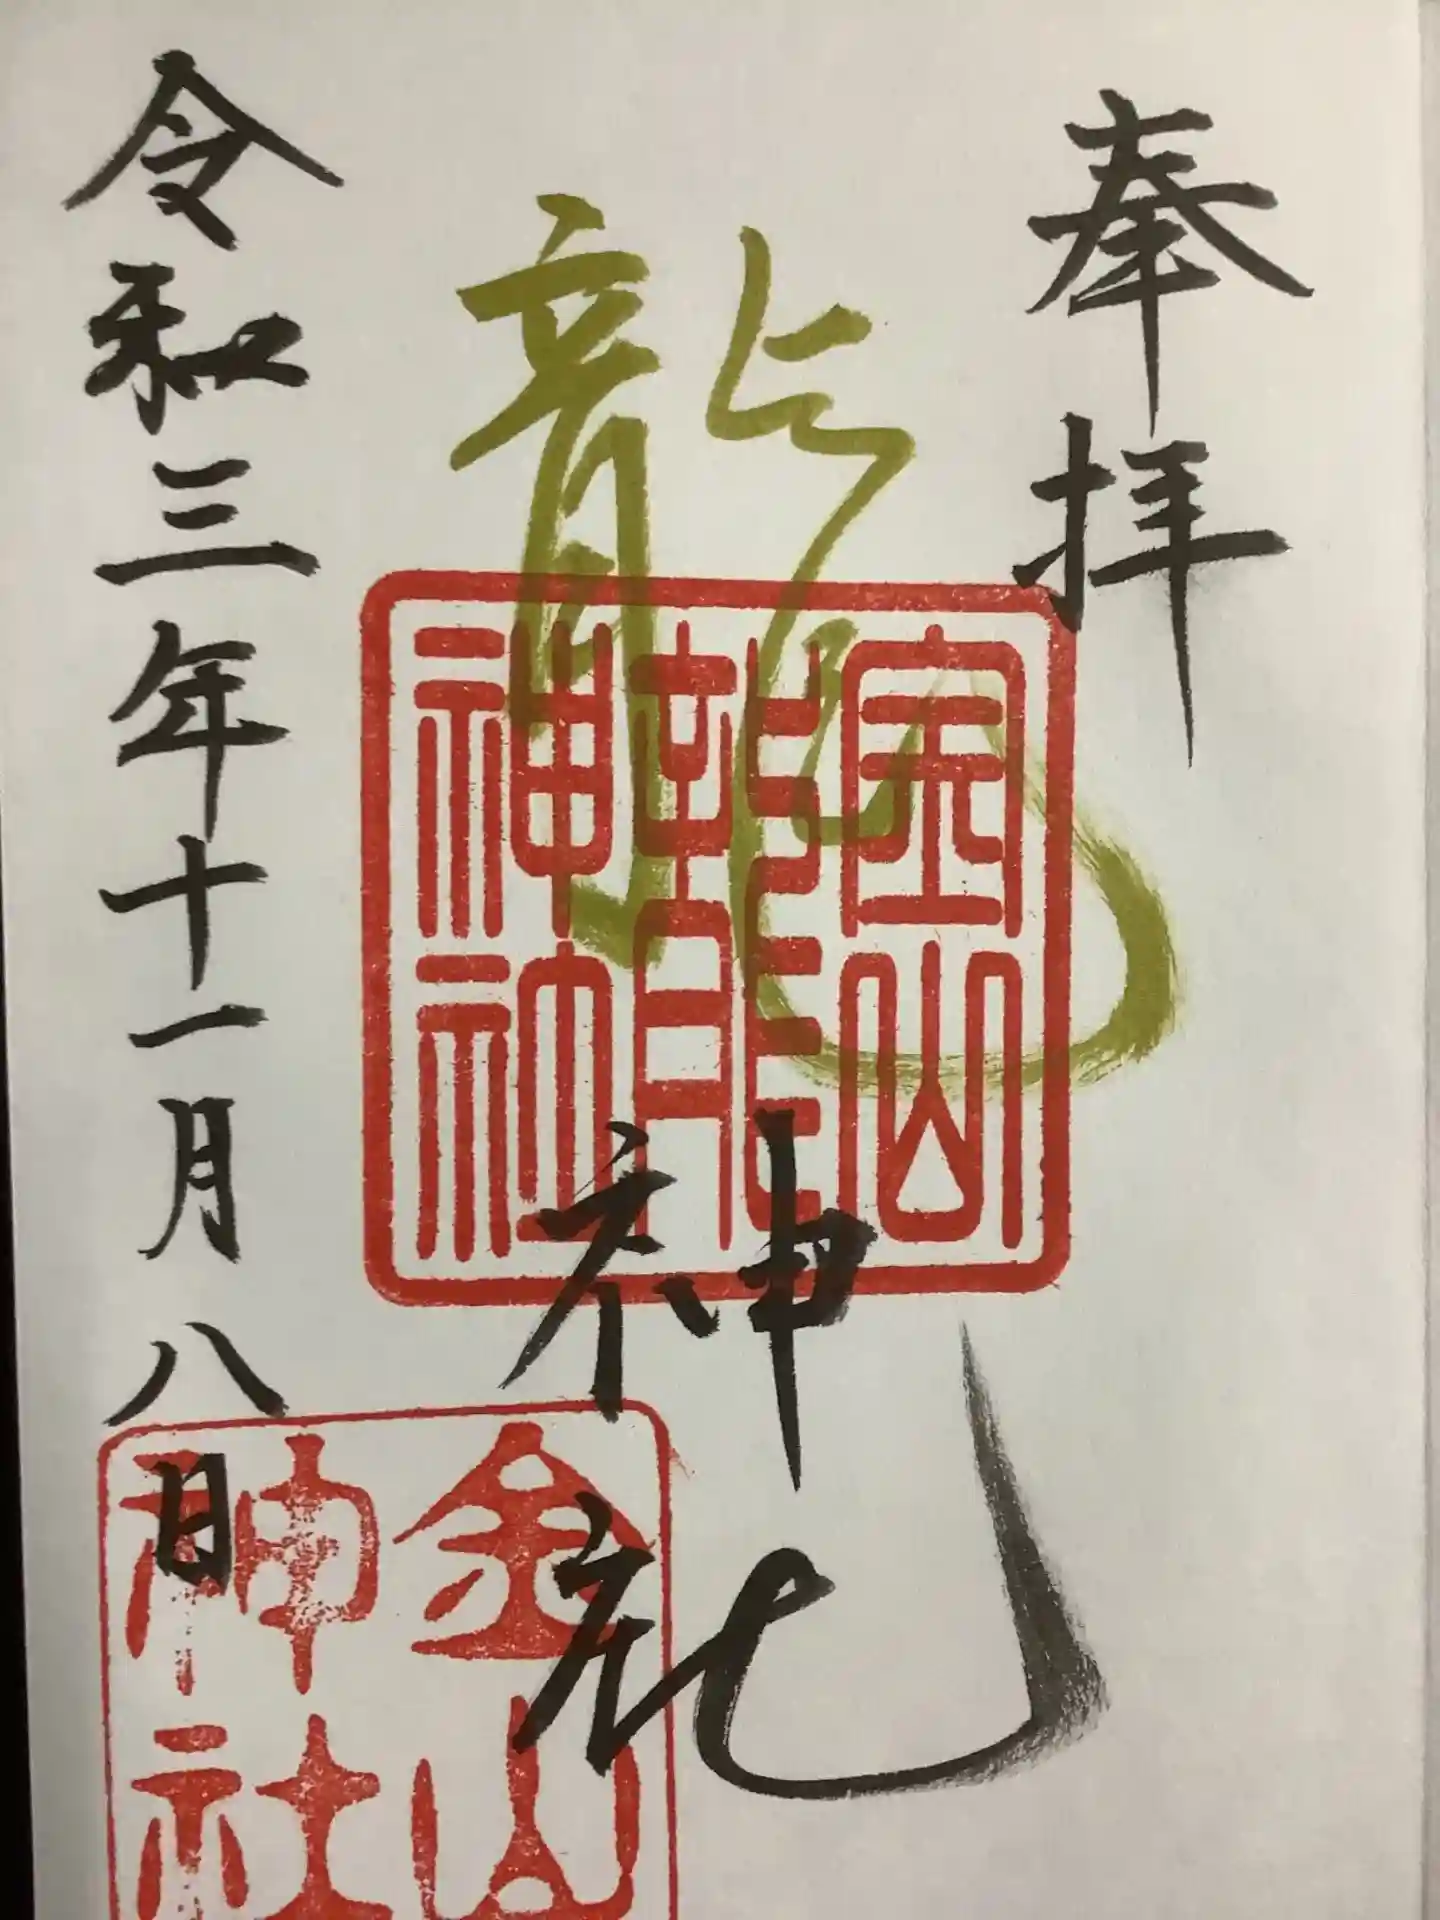 奉拝
龍神社
金山
龍
神社
令和三年十一月八日
金山
神社